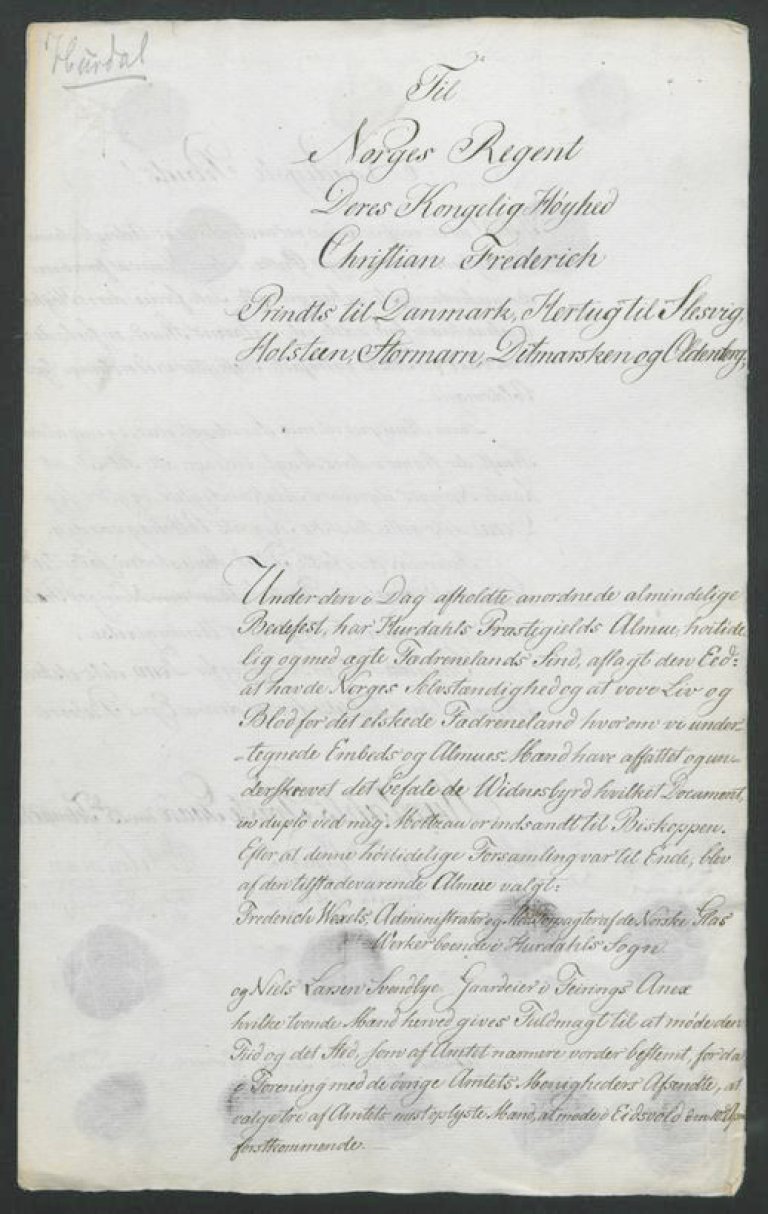 Hurdal
Til
Norges Regent
Deres Kongelig Høyhed
Christian Frederich
Prindts til Danmark, Hertug til Slesvig,
Holsteen, Stormarn, Ditmarsken og Oldenborg,
Under den i Dag afholdte anordnede almindelige
Bedefest, har Hurdahls Præstegields Almue, høitide
lig og med ægte Fædrenelands Sind, aflagt den Eed:
at hævde Norges Selvstændighed og at vove Liv og
Blod for det elskede Fædreneland hvorom vi under-
-tegnede Embeds og Almues-Mænd have affattet og un-
derskrevet det befalede Widnesbyrd hvilket Document,
in duplo ved mig Moltzau er indsandt til Biskoppen.
Efter at denne høitidelige Forsamling var til Ende, blev
af den tilstædeværende Almue valgt:
Frederich Wexels, Administrator og Medforpagter af de Norske Glas
Værker boende i Hurdahls Sogn
og Niels Larsen Svendbye Gaardeier i Feirings Anex
hvilke tvende Mænd herved gives Fuldmagt til at møde den
Tiid og det Sted, som af Amtet nærmere vorder bestemt, for da
i Forening med de øvrige Amtets Menigheders Afsendte, at
vælge tre af Amtets mest oplyste Mænd, at møde i Eidsvold den 10de
førstkommende.